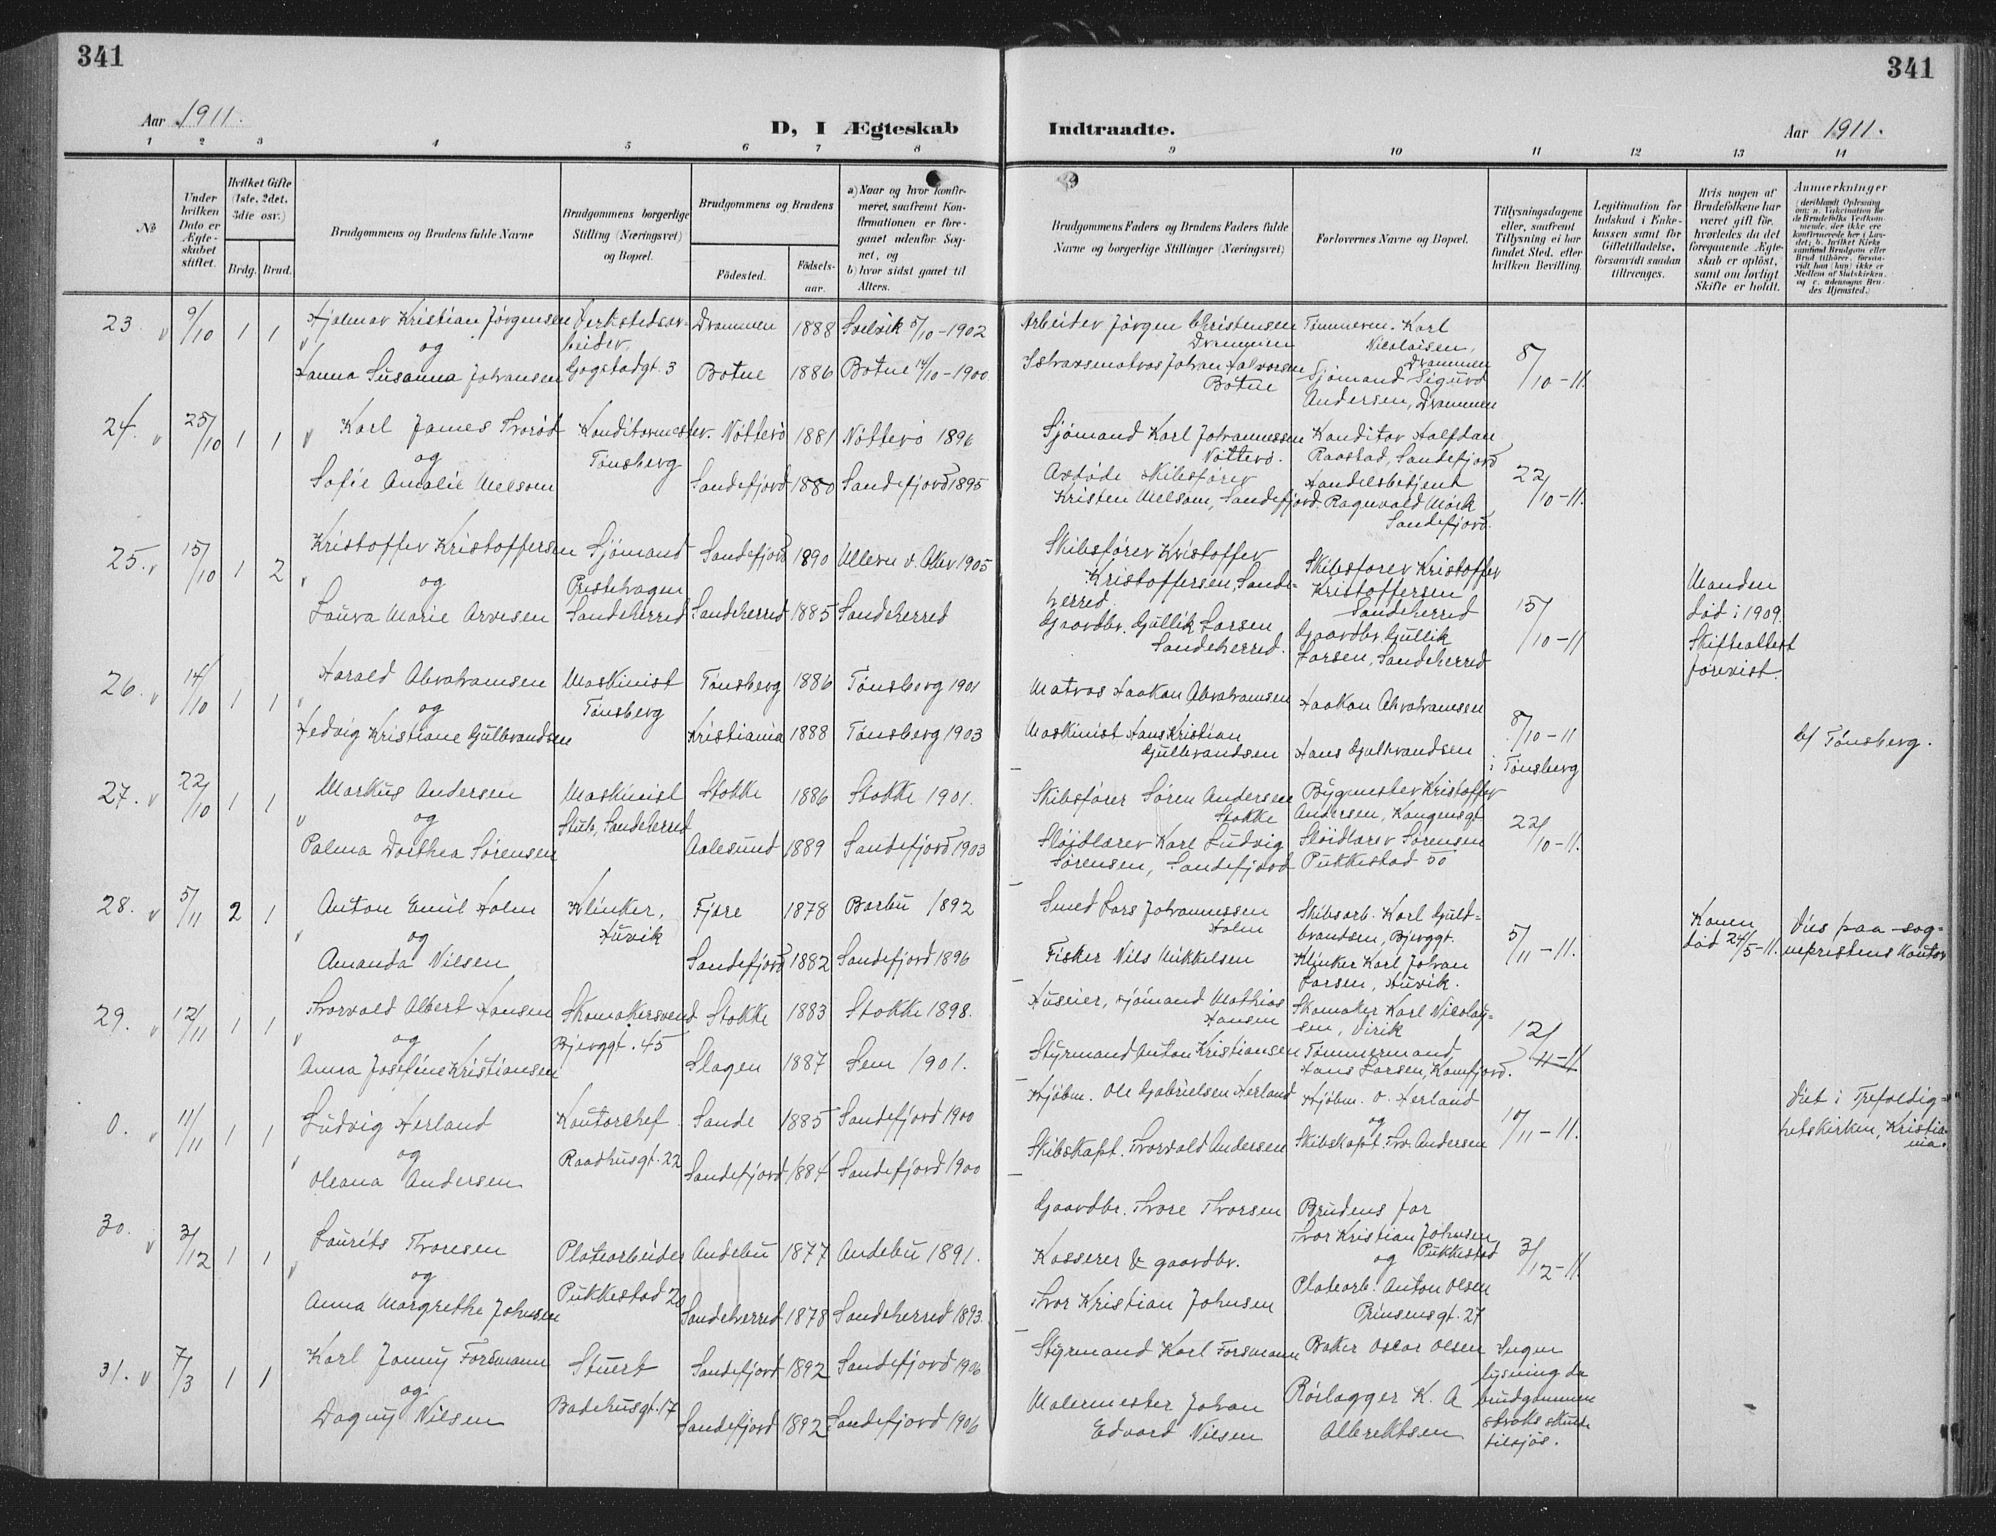 341
341
Aar 1911.
D, I Ægteskab
Indtraadte.
Aar 1911.
1 2 3 4 5 6 7 8
9 10 11 12 13 14
No
Under hvilken Dato er Ægteskabet stiftet.
Hvilket Gifte (1ste, 2det, 3die osv.)
Brdg. Brud.
Brudgommens og Brudens fulde Navne
Brudgommens borgerlige Stilling (Næringsvei) og Bopæl.
Brudgommens og Brudens
Fødested.
Fødselsaar.
a) Naar og hvor konfirmeret, saafremt Konfirmationen er foregaaet udenfor Sognet, og
b) hvor sidst gaaet til Alters.
Brudgommens Faders og Brudens Faders fulde Navne og borgerlige Stillinger (Næringsvei)
Forlovernes Navne og Bopæl.
Tillysningsdagene eller, saafremt Tillysning ei har fundet Sted, efter hvilken Bevilling.
Legitimation for Indskud i Enkekassen samt for Giftetilladelse, forsaavidt saadan tiltrænges.
Hvis nogen af Brudefolkene har været gift før, hvorledes da det foregaaende Ægteskab er opløst, samt om lovligt Skifte er holdt.
Anmerkninger
23. 9/10 1 1 Hjalmar Kristian Jørgensen Verkstedsarbeider, Drammen 1888 Svelvik 5/10-1902
og
Hanna Susanna Johansen Gogstadgt. 3 Botne 1886 Botne 14/10-1900
Arbeider Jørgen Christensen Drammen
Johan Halvorsen Botne
Tømmerm. Karl Nicolaisen, Drammen
Sjømand Sigurd Andersen, Drammen
8/10-11.
24. 25/10 1 1 Karl James Trorød Konditormester. Nøtterø 1881 Nøtterø 1896
og Tønsberg
Sofie Amalie Melsom Sandefjord 1880 Sandefjord 1895
Sjømand Karl Johannessen Nøtterø.
Afdøde Skibsfører Kristen Melsom, Sandefjord.
Konditor Halfdan Raastad, Sandefjord
Handelsbetjent Ragnvald Mørk Sandefjord.
22/10-11.
25. 15/10 1 2 Kristoffer Kristoffersen Sjømand Sandefjord 1890 Ullern v. Aker 1905
og Prestehagen
Laura Marie Arvesen Sandeherred Sandeherred 1885 Sandeherred
Skibsfører Kristoffer Kristoffersen, Sandeherred.
Gaardbr. Gullik Larsen Sandeherred.
Skibsfører Kristoffer Kristoffersen Sandeherred
Gaardbr. Gullik Larsen, Sandeherred
15/10-11
Manden død i 1909. Skifteattest forevist.
26. 14/10 1 1 Harald Abrahamsen Maskinist Tønsberg 1886 Tønsberg 1901
og Tønsberg
Hedvig Kristiane Gulbrandsen Kristiania 1888 Tønsberg 1903
Matros Haakon Abrahamsen
Maskinist Hans Kristian Gulbrandsen
Haakon Abrahamsen
Hans Gulbrandsen
8/10-11 i Tønsberg
b/ Tønsberg.
27. 22/10 1 1 Markus Andersen Maskinist Stokke 1886 Stokke 1901.
og Stub, Sandeherred
Palma Dorthea Sørensen Aalesund 1889 Sandefjord 1903
Skibsfører Søren Andersen Stokke
Sløidlærer Karl Ludvig Sørensen, Sandefjord
Bygmester Kristoffer Andersen, Kongensgt
Sløidlærer Sørensen Pukkestad 50
22/10-11.
28. 5/11 2 1 Anton Emil Holm Klinker, Fjære 1878 Barbu 1892
og Huvik
Amanda Nilsen Sandefjord 1882 Sandefjord 1896
Smed Lars Johannessen Holm
Fisker Nils Mikkelsen
Skibsarb. Karl Guldbrandsen, Bjerggt.
Klinker Karl Johan Larsen, Huvik.
5/11-11.
Konen død 24/5-11.
Viet paa sognepræstens kontor
29. 12/11 1 1 Thorvald Albert Hansen Skomakersvend Stokke 1883 Stokke 1898.
og Bjerggt. 45
Anna Josefine Kristiansen Slagen 1887 Sem 1901.
Huseier, sjømand Mathias Hansen
Styrmand Anton Kristiansen
Skomaker Karl Nicolaysen, Virik
Tømmermand Hans Larsen, Kamfjord.
12/11-11
0. 11/11 1 1 Ludvig Herland Kontorchef Sande 1885 Sandefjord 1900
og Raadhusgt. 22
Oleana Andersen Sandefjord 1884 Sandefjord 1900
Kjøbm. Ole Gabrielsen Herland
Skibskapt. Thorvald Andersen
Kjøbm. O. Herland
og
Skibskapt. Thv. Andersen
10/11-11.
Viet i Trefoldighetskirken, Kristiania.
30. 3/12 1 1 Laurits Thoresen Platearbeider Andebu 1877 Andebu 1891.
og Pukkestad 20
Anna Margrethe Johnsen Sandeherred 1878 Sandeherred 1893.
Gaardbr. Thore Thorsen
Kasserer & gaardbr. Thor Kristian Johnsen
Brudens far Thor Kristian Johnsen, Pukkestad
og
Platearb. Anton Olsen Prinsensgt. 27
3/12-11.
31. 7/3 1 1 Karl Jonny Forsmann Stuert Sandefjord 1892 Sandefjord 1906
og Badehusgt. 17
Dagny Nilsen Sandefjord 1892 Sandefjord 1906
Styrmand Karl Forsmann
Malermester Johan Edvard Nilsen
Baker Oscar Olsen
Rørlægger K. A Albrektsen
Ingen lysning da brudgommen straks skulde tilsjøs.